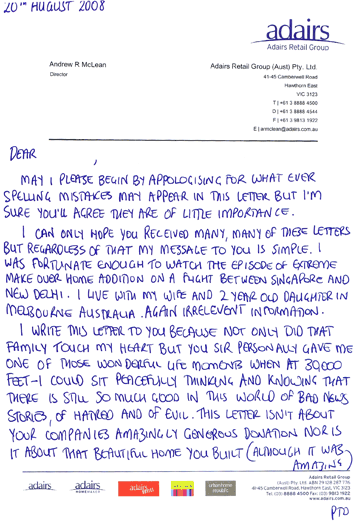 20TH AUGUST 2008
adairs
Adairs Retail Group
Andrew R McLean
Director
Adairs Retail Group (Aust) Pty. Ltd.
41-45 Camberwell Road
Hawthorn East
VIC 3123
T | +61 3 8888 4500
D | +61 3 8888 4544
F | +61 3 9813 1922
E | armclean@adairs.com.au
DEAR ,
MAY I PLEASE BEGIN BY APPOLOGISING FOR WHAT EVER
SPELLING MISTAKES MAY APPEAR IN THIS LETTER BUT I'M
SURE YOU'LL AGREE THEY ARE OF LITTLE IMPORTANCE.
I CAN ONLY HOPE YOU RECEIVED MANY, MANY OF THESE LETTERS
BUT REGARDLESS OF THAT MY MESSAGE TO YOU IS SIMPLE. I
WAS FORTUNATE ENOUGH TO WATCH THE EPISODE OF EXTREME
MAKE OVER HOME ADDITION ON A FLIGHT BETWEEN SINGAPORE AND
NEW DELHI. I LIVE WITH MY WIFE AND 2 YEAR OLD DAUGHTER IN
MELBOURNE AUSTRALIA. AGAIN IRRELEVENT INFORMATION.
I WRITE THIS LETTER TO YOU BECAUSE NOT ONLY DID THAT
FAMILY TOUCH MY HEART BUT YOU SIR PERSONALLY GAVE ME
ONE OF THOSE WONDERFUL LIFE MOMENTS WHEN AT 39,000
FEET - I COULD SIT PEACEFULLY THINKING AND KNOWING THAT
THERE IS STILL SO MUCH GOOD IN THIS WORLD OF BAD NEWS
STORIES, OF HATRED AND OF EVIL. THIS LETTER ISN'T ABOUT
YOUR COMPANIES AMAZINGLY GENEROUS DONATION NOR IS
IT ABOUT THAT BEAUTIFUL HOME YOU BUILT (ALTHOUGH IT WAS
AMAZING)
adairs
adairs
HOMEMAKER
adairs
kids
urbanhome
republic
Adairs Retail Group
(Aust) Pty. Ltd. ABN 79 128 287 776
41-45 Camberwell Road, Hawthorn East, VIC 3123
Tel: (03) 8888 4500 Fax: (03) 9813 1922
www.adairs.com.au
PTO